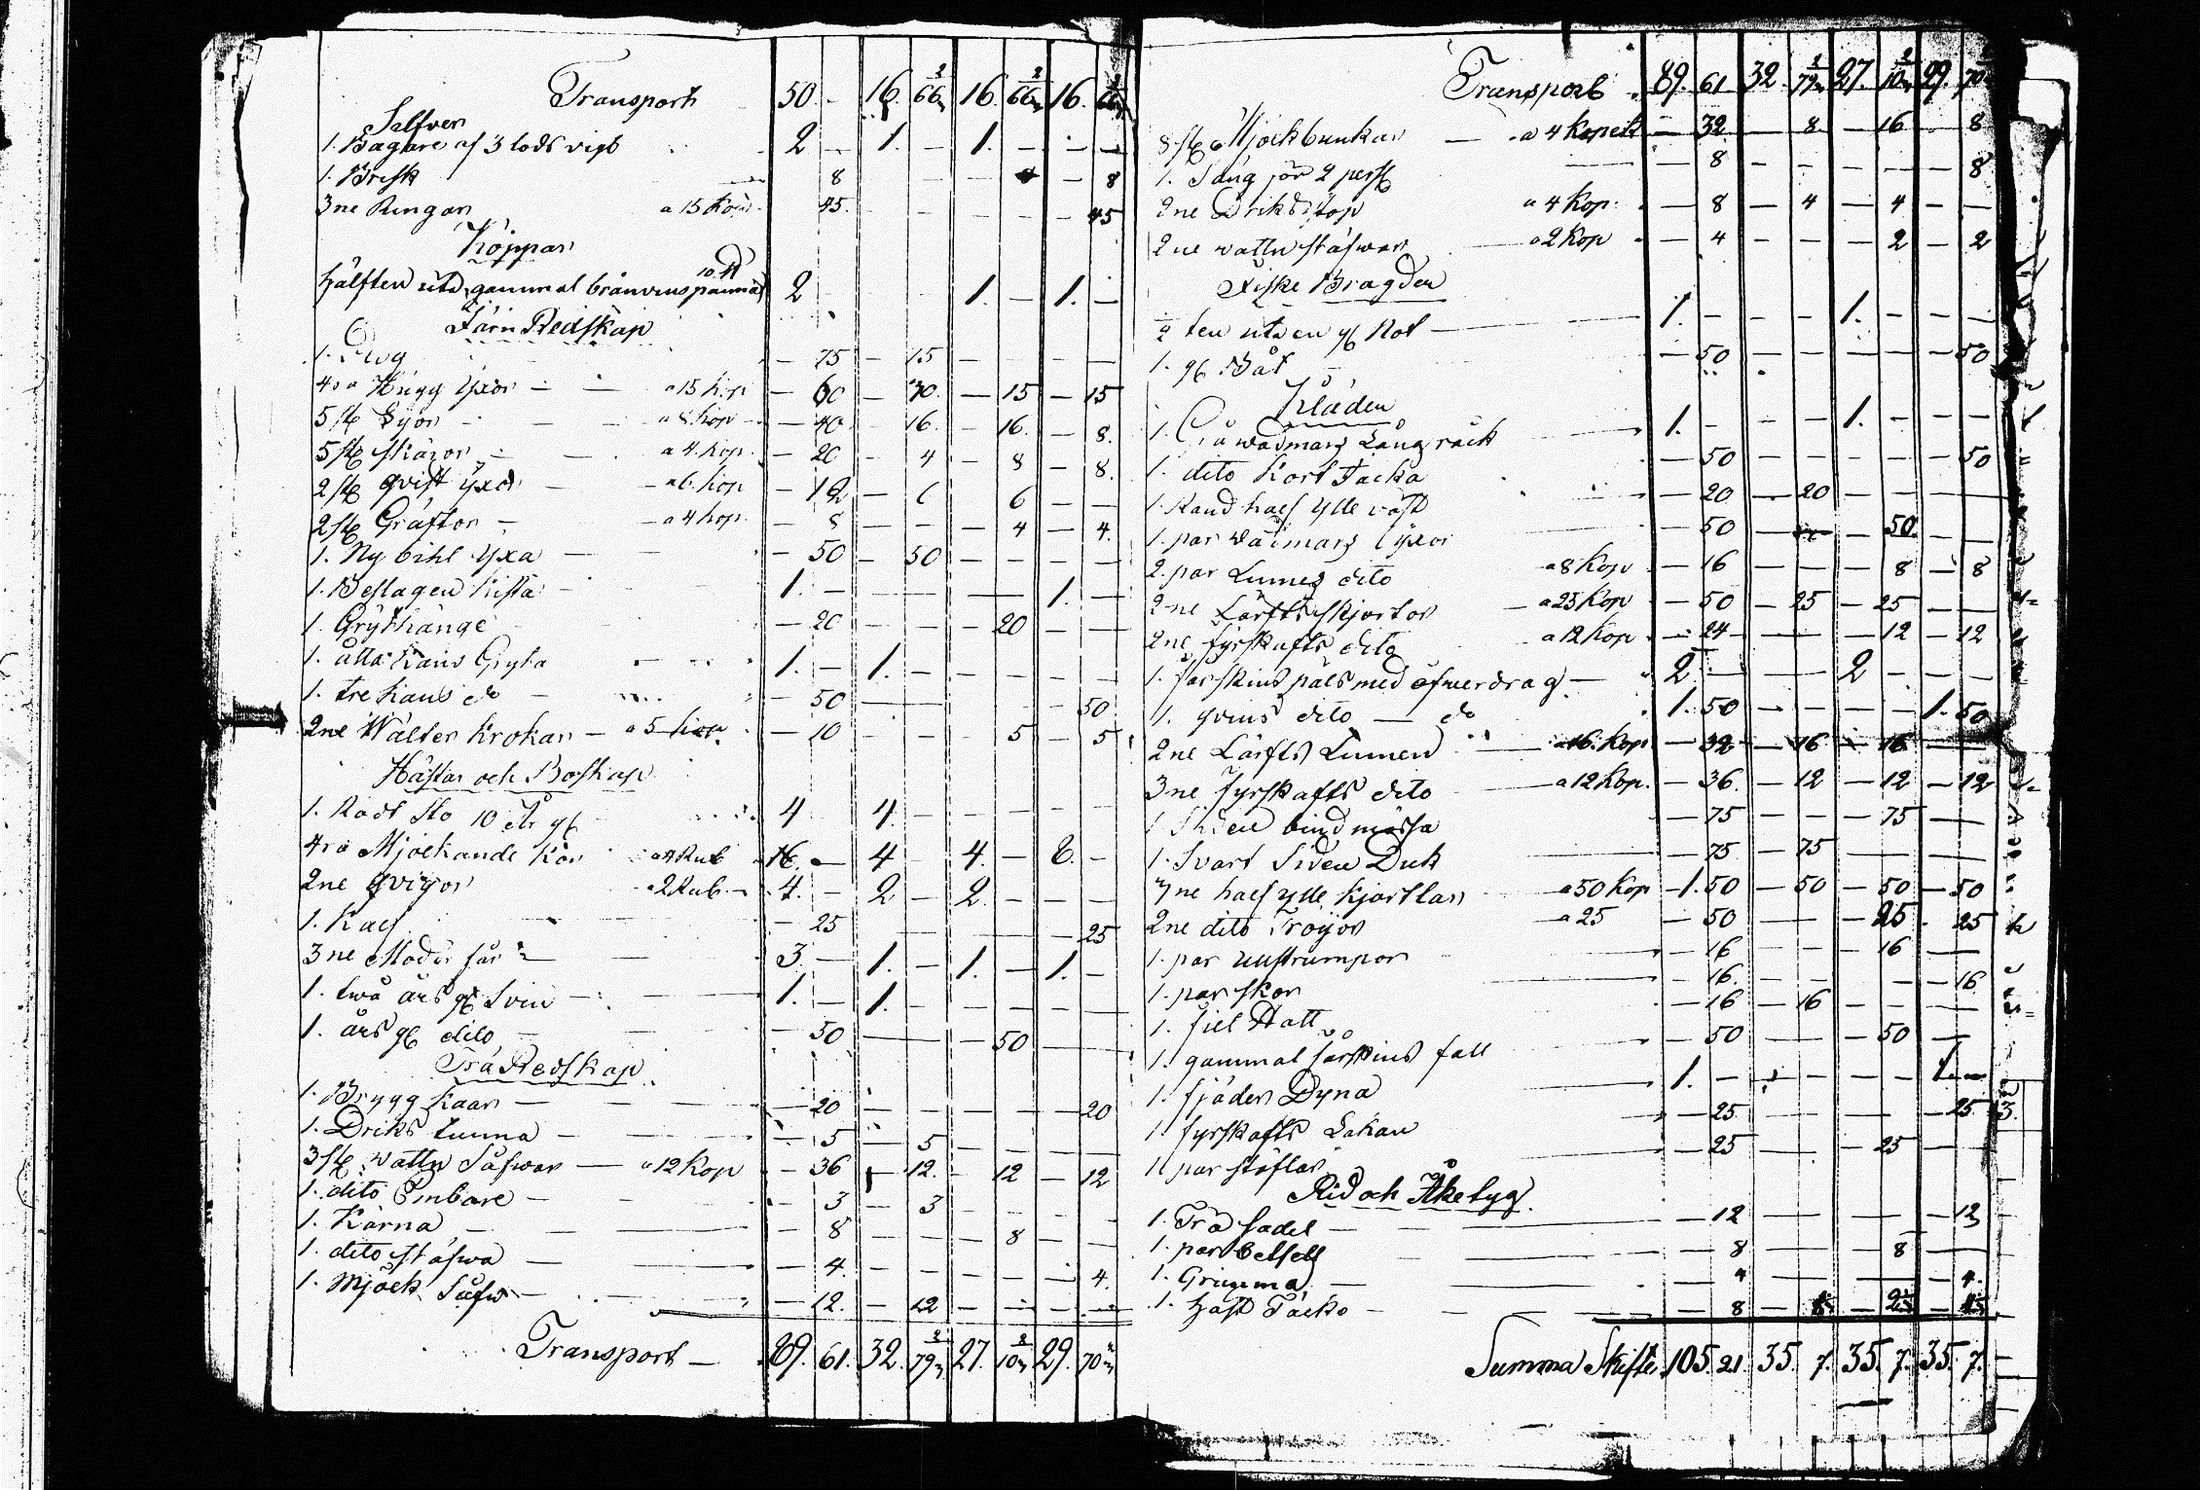 Transport 50 - 16. 66 2/3 16. 66 2/3 16. 66 2/3
Silfver
1. Bägare af 3 lods vigt 2 - 1. - 1. - - -
1. Brisk 8 - 8
3ne Ringar a 15 Kop 45. - - - - - 45
Koppar
hälften uti 1 gammal bränvins panna 10 2 1. - 1. -
Järn Redskap
1. Plog - 75 - 75 - - - -
4ra Hugg Yxor - - a 15 Kop - 60 - 30. - 15 - 15
5 st Lijor - - a 8. Kop - 40 - 16. - 16. - 8.
5 st Skäror - - a 4. Kop. - 20 - 4 - 8 - 8.
2 st qvist yxor - a 6. Kop - 12 - 6 6 - -
2 st Gräftor - - a 4 Kop. - 8 - - - 4 - 4.
1. Ny bihl Yxa - - 50 - 50 - - - -
1. Beslagen Kista - 1. - - 1. -
1. Grythänge - 20 - 20 - -
1. åtta Kans Gryta 1. - 1. - - - - -
1. tre Kans do - - 50 - - 50
2ne Wälter Krokar - a 5 Kop - 10 - - - 5 - 5
Hästar och Boskap
1. Rödt Sto 10 år gl 4 4. - - - -
4ra Mjölkande Kor a 4 Rub 16. - 4 4. - 8. -
2ne qvigor a 2 Rub. - 4. - 2 - 2. - - -
1. Kalf - 25 - - 25
3ne Moder får - 3 - 1. - 1. - 1. -
1. twå års gl Svin - 1. - 1. - - - - -
1. års gl dito - - 50 - - 50 -
Trä Redskap
1. Brygg Kaar - - 20 - - - - - 20
1. Driks tunna - - 5 - 5 - - - -
3 st wattn Såfwar - a 12 Kop - 36 - 12. - 12 - 12
1. dito Embare - - 3 - 3 - - - -
1. Kärna - - 8 - - - 8 - -
1. dito Stäfwa - - 4. - - - - - 4.
1. Mjölk Såfw - - 12. - 12 - - - -
Transport - 89. 61. 32. 79 2/3 27. 10 2/3 29. 70 2/3
Transport 89. 61 32. 79 2/3 27. 10 2/3 29. 70
8 st Mjölkbunkar - a 4 Kopeik - 32 - 8 - 16 - 8
1. Säng för 2 pers - 8 - - - - - 8
2ne Drikstop a 4 Kop. - 8 - 4 - 4 - -
2ne wattn stäfwar a 2 Kop - 4 - - - 2 - 2
Fiske Bragden
ten uti en gl Not - 1. - - - 1. - - -
1. gl Båt - - 50 - - - - - 50
Kläden
1. Grå wadmars Långråck 1. - - - 1. - - -
1. dito Kort Jacka - 50 - - - - - 50
1. Rand half Ylle väst - 20 - 20 - - - -
1. par wadmars - 50 - - 50. - -
2. par Linnes dito a 8 Kop - 16 8 - 8
2ne Lärfts Skjortor - a 25 Kop - 50 - 25 - 25 - -
2ne fyrskafts dito a 12 Kop - 24 - - - 12 - 12
1. fårskins päls med öfwerdrag - 2 - - - 2 - - -
1. qvins dito - do 1. 50 - - - - 1. 50
2ne Lärfts Linnen - a 16. Kop - 32 - 16 - 16 - -
3ne fyrskafts dito - a 12 Kop. - 36. - 12 - 12 - 12
1 Siden bindmössa - 75 - - - 75 - -
1. Svart Siden Duk - 75 - 75 - - - -
3ne half ylle Kjortlar a 50 Kop - 1. 50 - 50 - 50 - 50
2ne dito Tröjor - a 25 - 50 - - - 25 - 25
1. par ullstrumpor - 16 - - - 16 - -
1. par skor - 16. - - - - - 16
1. filt Hatt - 16 - 16 - - - -
1. gammal fårskins fäll - 50 - - - 50 - -
1. fjäder Dyna 1. - - - - - 1. -
1. fyrskafts Lakan - 25 - - - - - 25
1 par stöflar - 25 - - - 25 - -
Rid och Åketyg
1. Trä Sadel - - 12 - - - - - 12
1. par betsell - 8 - - - 8 - -
1. Grimma - - 4 - - - - - 4.
1. häst Täcke - - 8 -
Summa Skifte 105. 21. 35. 7. 35. 7. 35. 7.